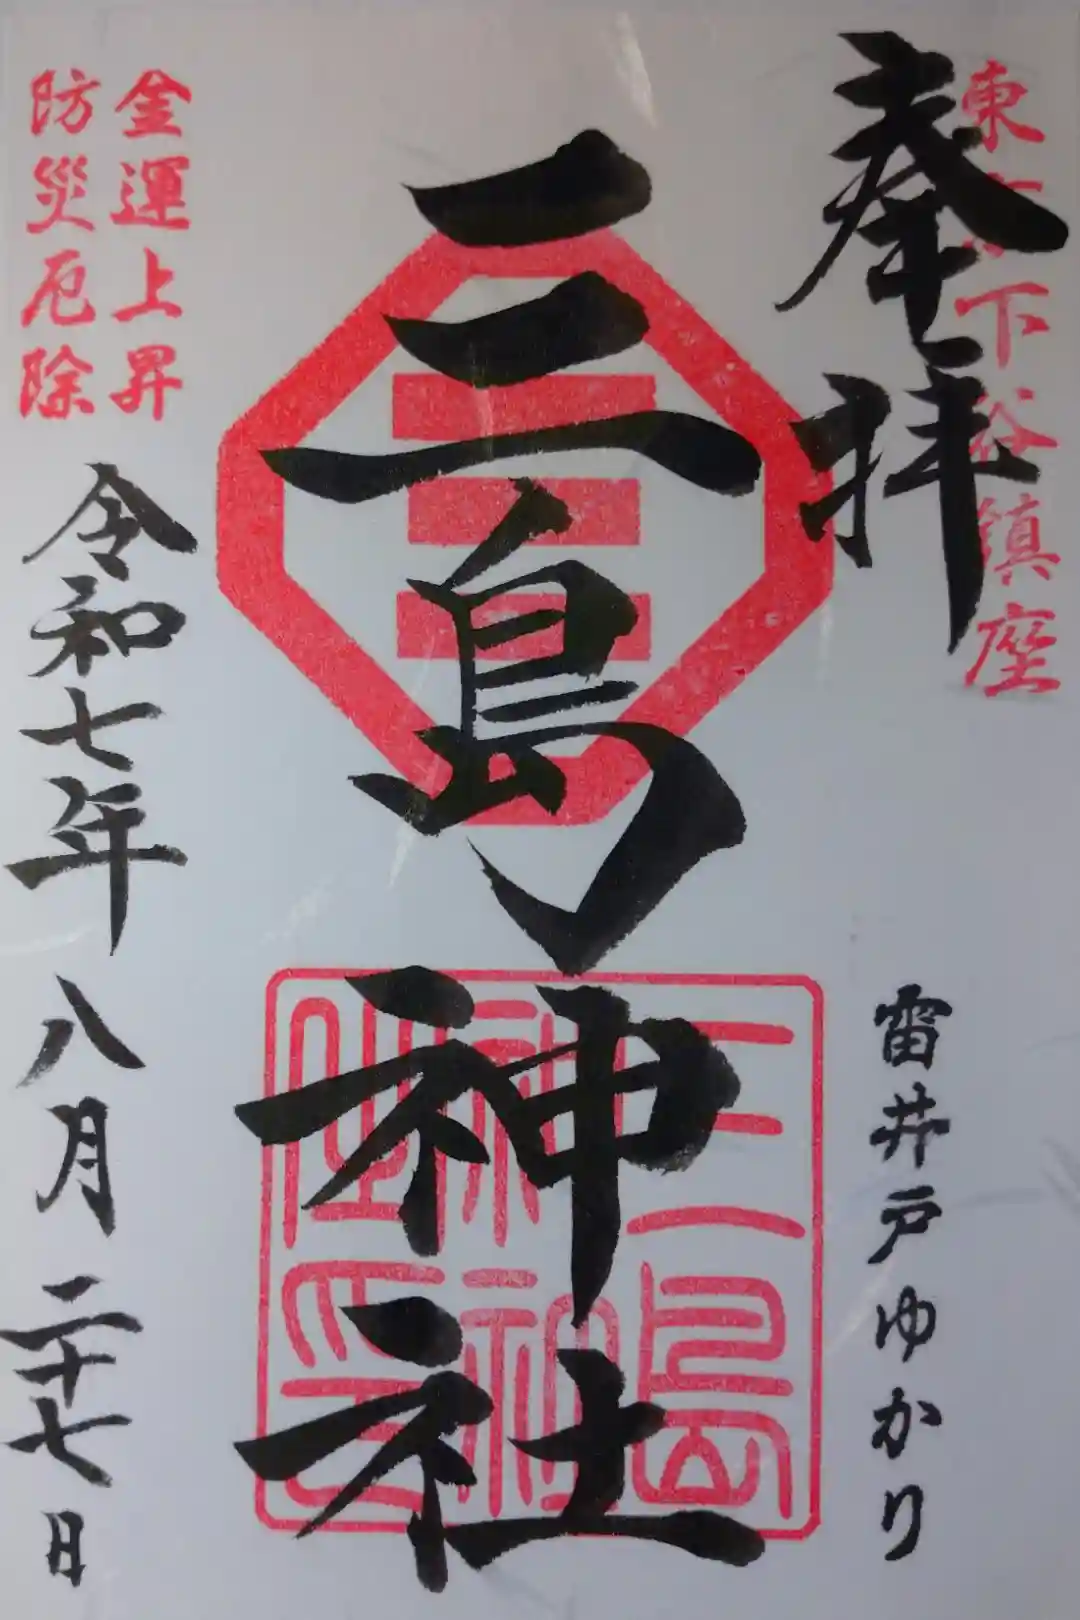 東京下谷鎮座
奉拝
雷井戸ゆかり
三島神社
三島
神社
印
金運上昇
防災厄除
令和七年八月二十七日